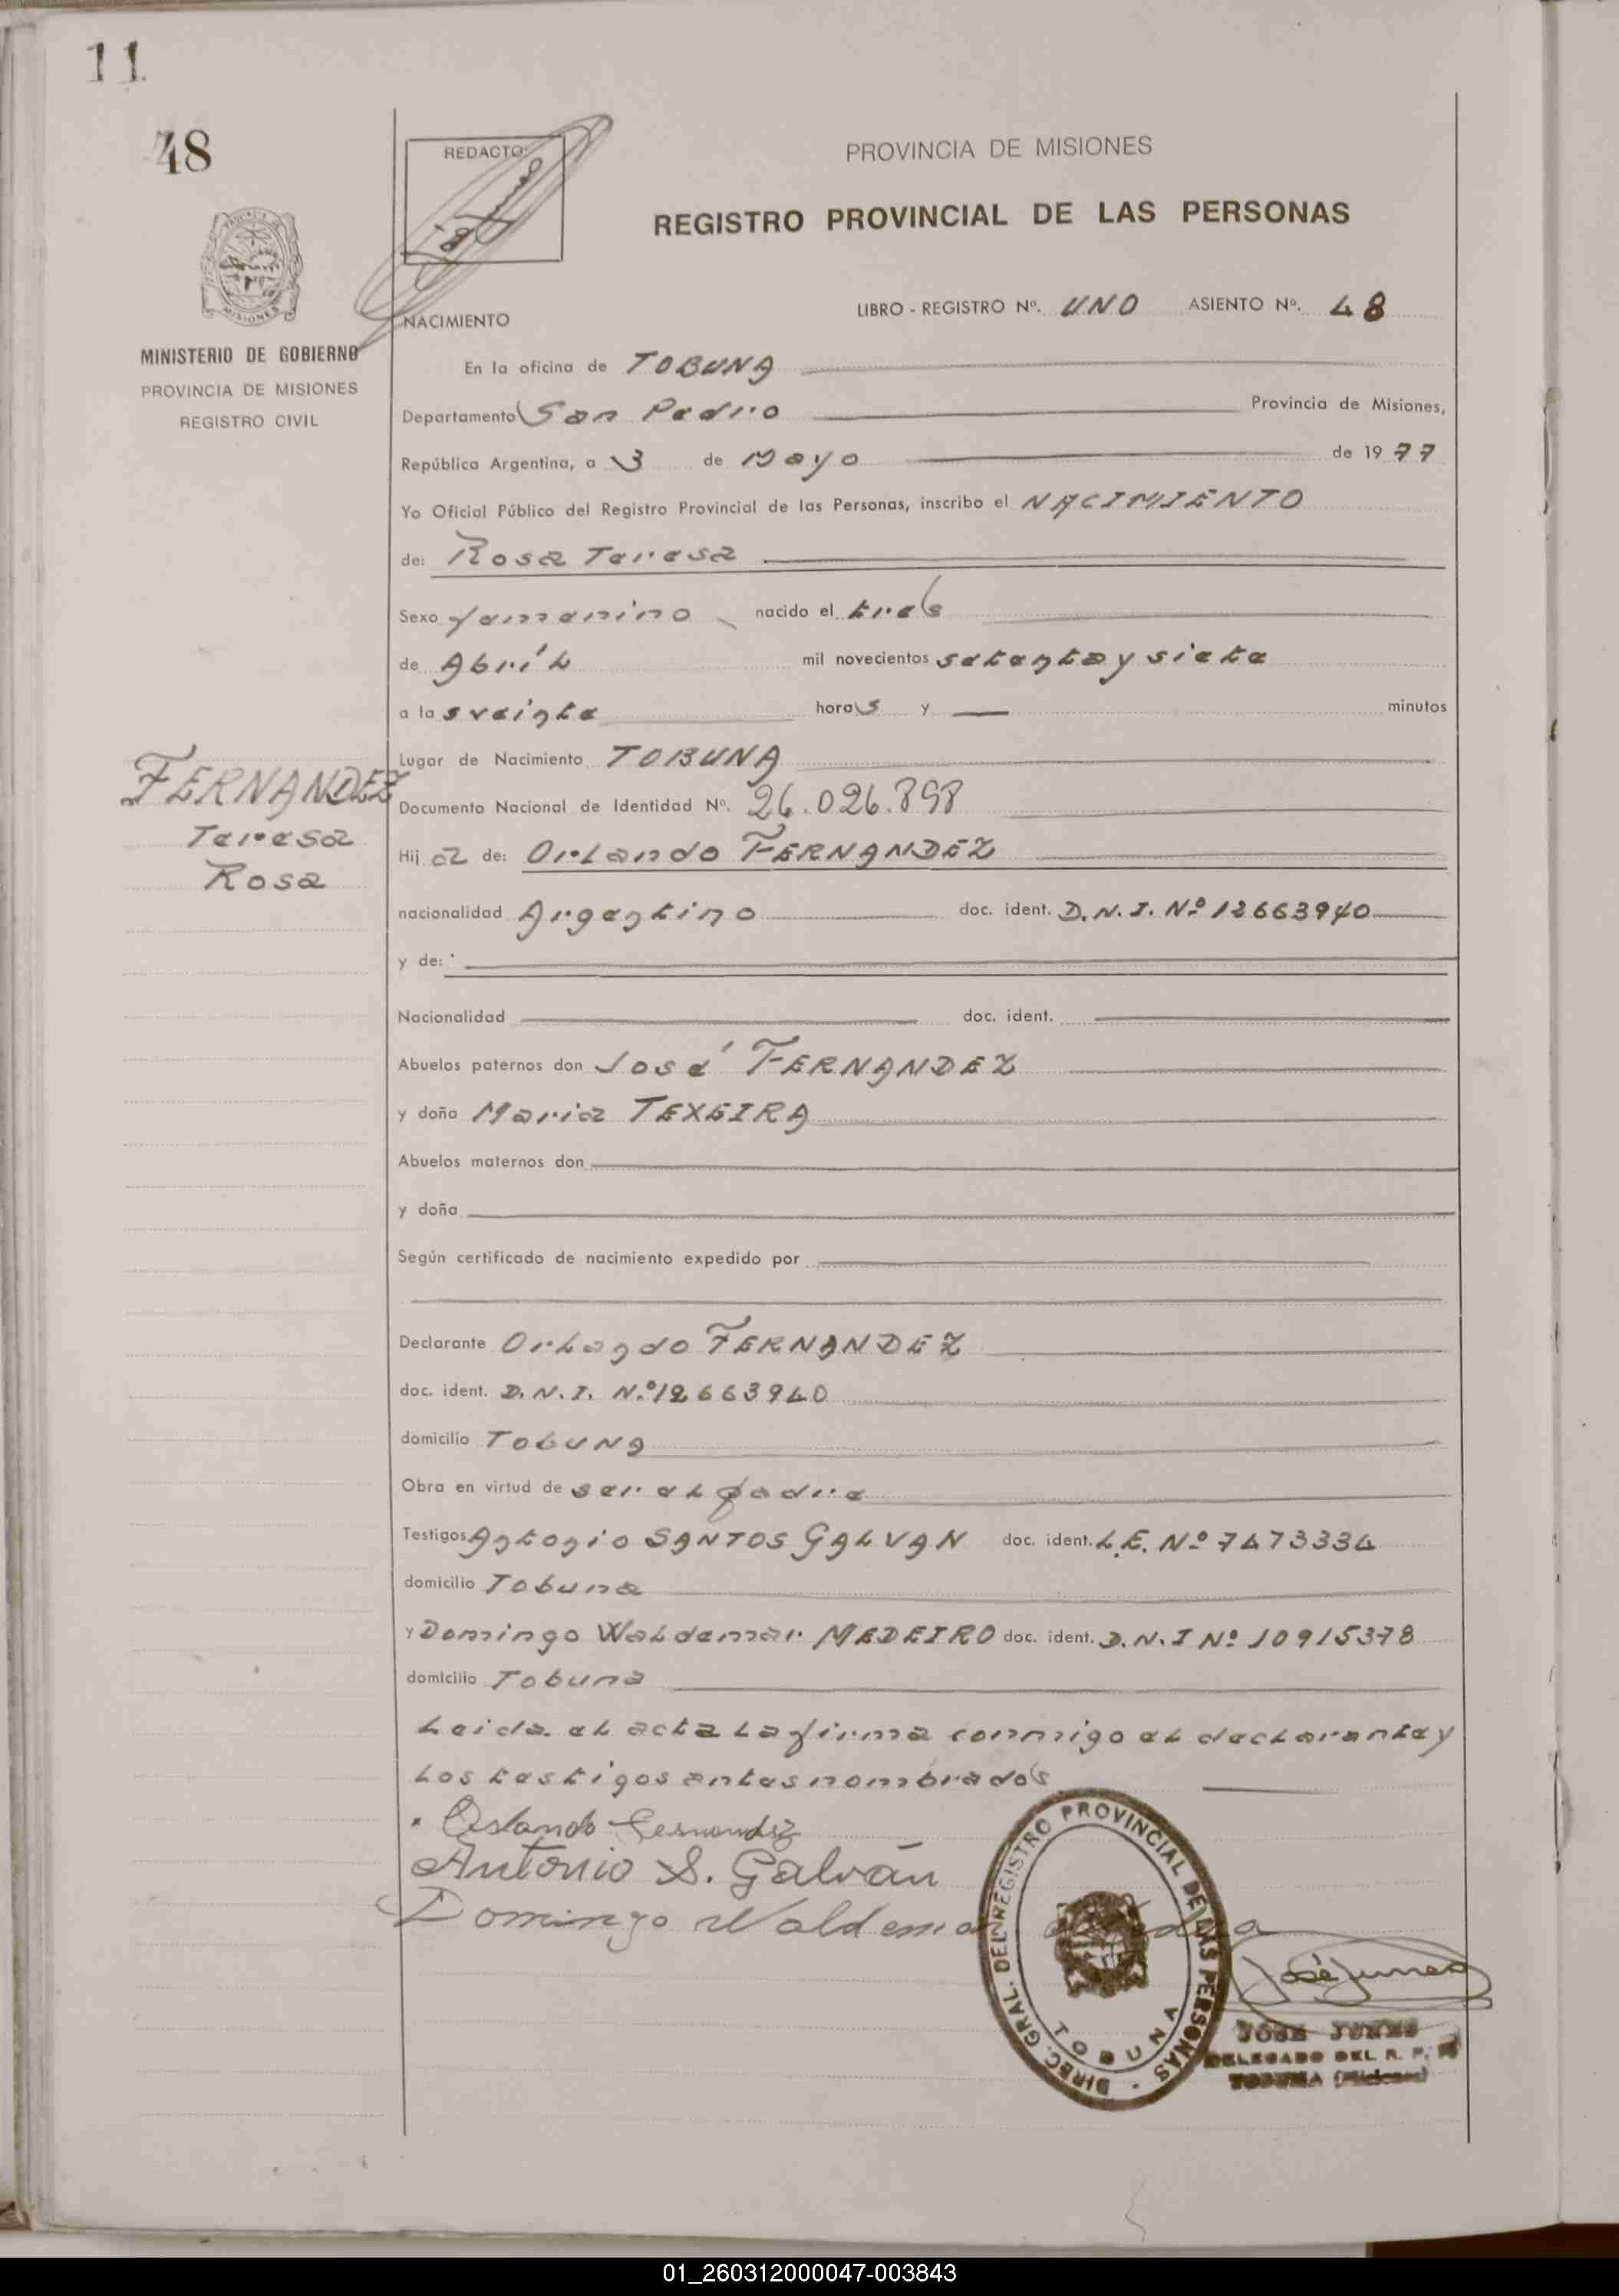 11
48
REDACTO:
PROVINCIA DE MISIONES
REGISTRO PROVINCIAL DE LAS PERSONAS
MISIONES
MINISTERIO DE GOBIERNO
PROVINCIA DE MISIONES
REGISTRO CIVIL
LIBRO - REGISTRO Nº. UNO ASIENTO Nº. 48
NACIMIENTO
En la oficina de TOBUNA
Departamento San Pedro Provincia de Misiones,
República Argentina, a 3 de Mayo de 1977
Yo Oficial Público del Registro Provincial de las Personas, inscribo el NACIMIENTO
de: Rosa Teresa
Sexo femenino nacido el tres
de Abríl mil novecientos setenta y siete
a las veinte horas y — minutos
Lugar de Nacimiento TOBUNA
FERNANDEZ
Teresa
Rosa
Documento Nacional de Identidad Nº. 26.026.898
Hija de: Orlando FERNANDEZ
nacionalidad Argentino doc. ident. D.N.I. Nº 12663940
y de:
Nacionalidad doc. ident.
Abuelos paternos don José FERNANDEZ
y doña Maria TEXEIRA
Abuelos maternos don
y doña
Según certificado de nacimiento expedido por
Declarante Orlando FERNANDEZ
doc. ident. D.N.I. N.º 12663940
domicilio TobUNA
Obra en virtud de ser el padre
Testigos Antonio SANTOS GALVAN doc. ident. L.E. Nº 7473334
domicilio Tobuna
y Domingo Waldemar MEDEIRO doc. ident. D.N.I Nº 10915378
domicilio Tobuna
Leida el acta la firma conmigo el declarante y
los testigos antes nombrados
Orlando Fernandez
Antonio S. Galván
Domingo Waldemar
DIREC. GRAL. DEL REGISTRO PROVINCIAL DE LAS PERSONAS
TOBUNA
José Junes
JOSE JUNES
DELEGADO DEL R. P.
TOBUNA (Misiones)
01_260312000047-003843